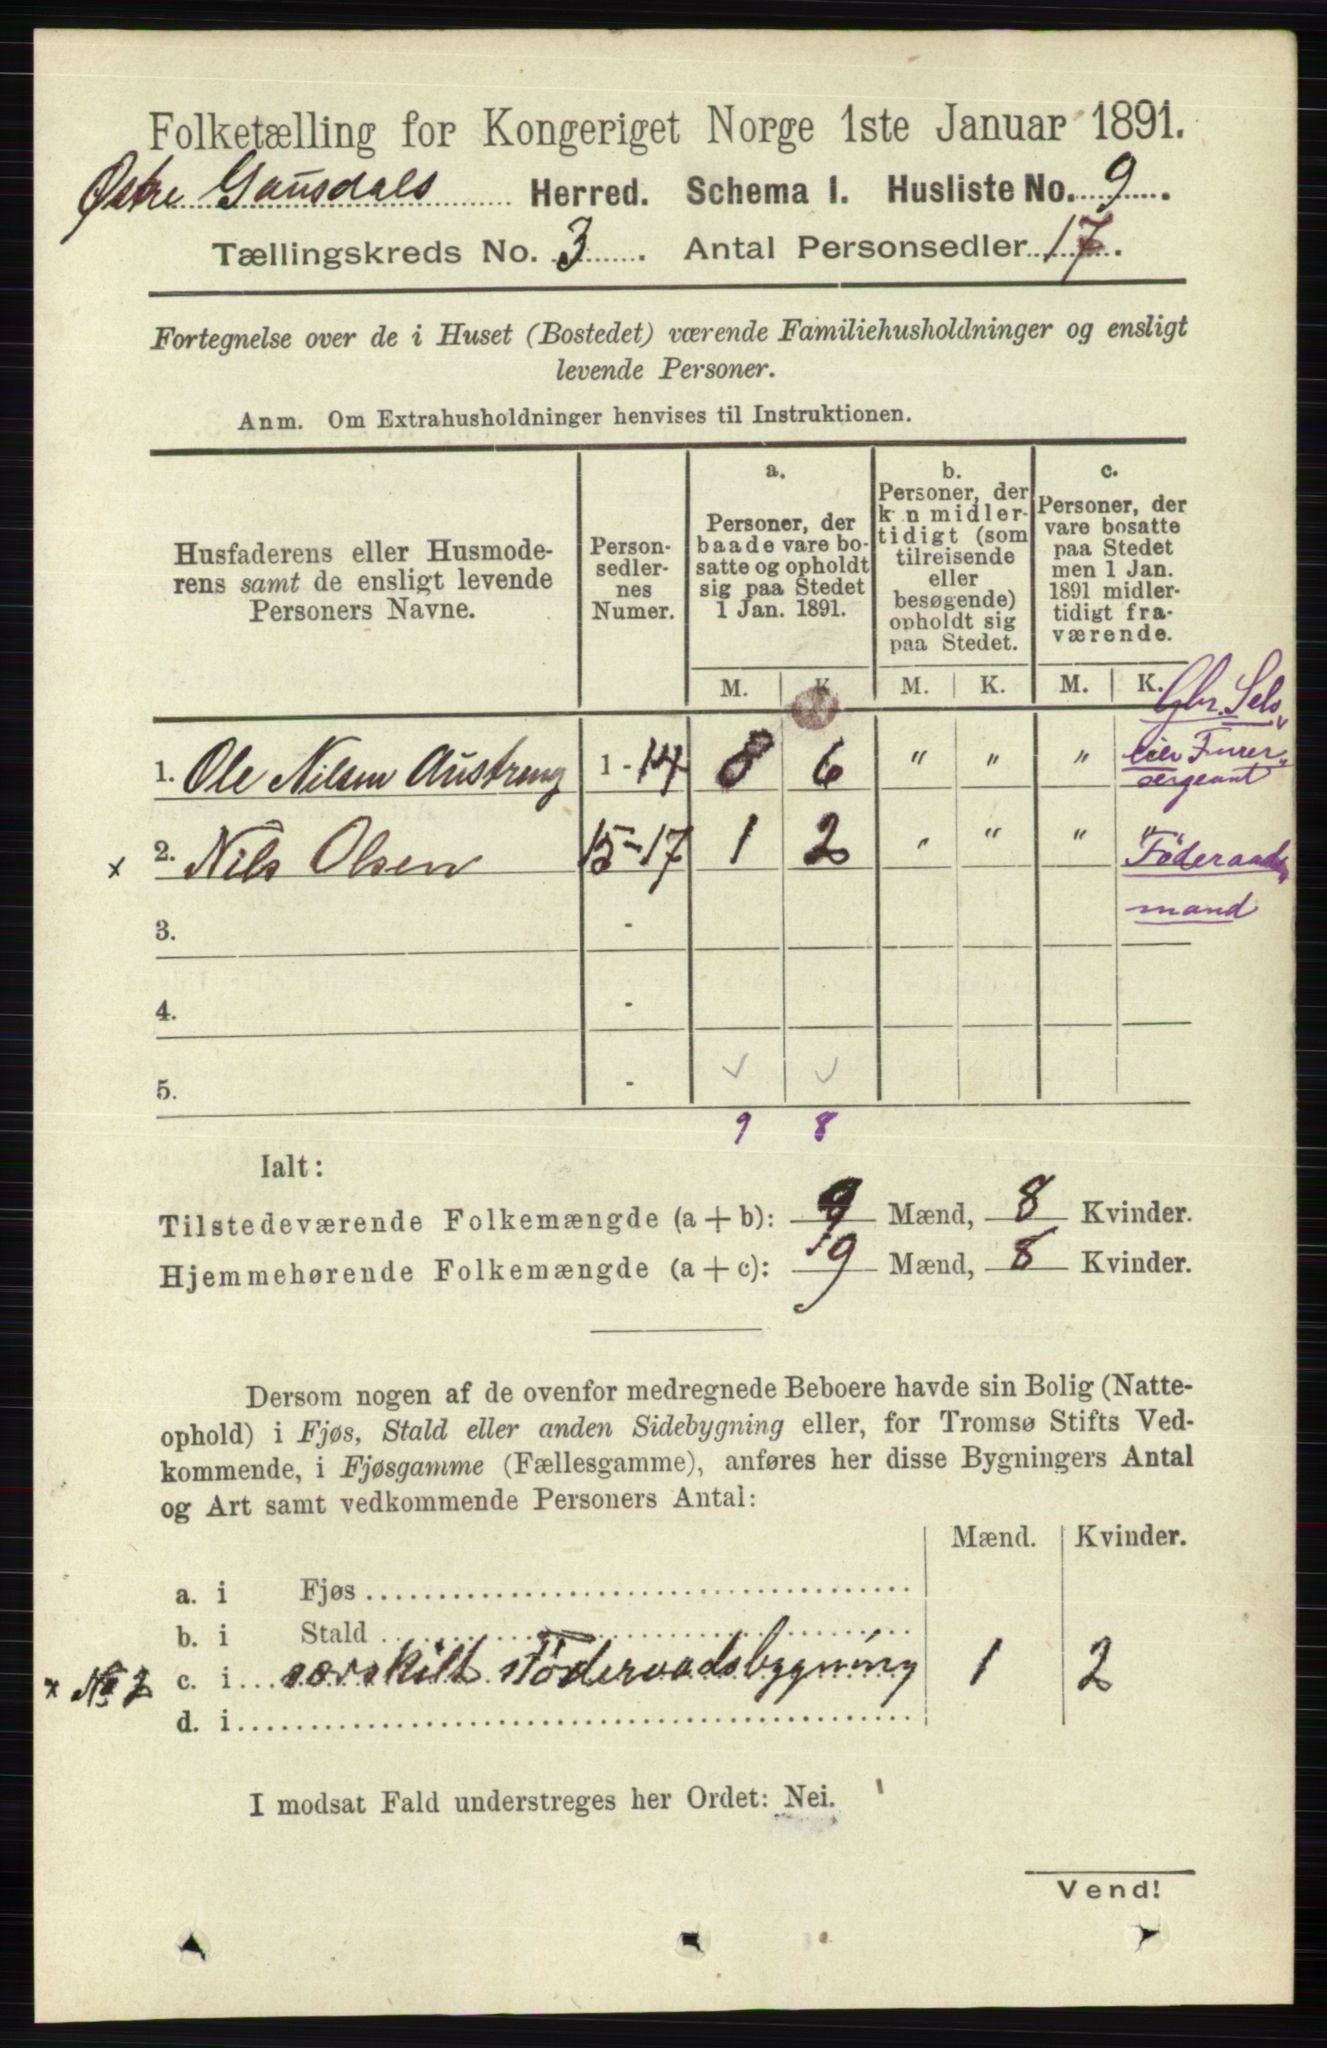 Folketælling for Kongeriget Norge 1ste Januar 1891.
Østre Gausdals Herred. Schema 1. Husliste No. 9.
Tællingskreds No. 3. Antal Personsedler 17.
Fortegnelse over de i Huset (Bostedet) værende Familiehusholdninger og ensligt
levende Personer.
Anm. Om Extrahusholdninger henvises til Instruktionen.
Husfaderens eller Husmode-
rens samt de ensligt levende
Personers Navne.
Person-
sedler-
nes
Numer.
a.
Personer, der
baade vare bo-
satte og opholdt
sig paa Stedet
1 Jan. 1891.
b.
Personer, der
k n midler-
tidigt (som
tilreisende
eller
besøgende)
opholdt sig
paa Stedet.
c.
Personer, der
vare bosatte
paa Stedet
men 1 Jan.
1891 midler-
tidigt fra-
værende.
M. K. M. K. M. K.
Gbr. Sels
1. Ole Nilsen Austreng 1 - 14 8 6 " " "
sergeant
x 2. Nils Olsen 15 - 17 1 2 " " " "
Föderaads
mand
3. -
4. -
5. -
9 8
Ialt:
Tilstedeværende Folkemængde (a + b): 9 Mænd, 8 Kvinder.
Hjemmehørende Folkemængde (a + c): 9 Mænd, 8 Kvinder.
Dersom nogen af de ovenfor medregnede Beboere havde sin Bolig (Natte-
ophold) i Fjøs, Stald eller anden Sidebygning eller, for Tromsø Stifts Ved-
kommende, i Fjøsgamme (Fællesgamme), anføres her disse Bygningers Antal
og Art samt vedkommende Personers Antal:
Mænd. Kvinder.
a. i Fjøs
b. i Stald
x No 2 c. i særskilt Föderaadsbygning 1 2
d. i
I modsat Fald understreges her Ordet: Nei.
Vend!